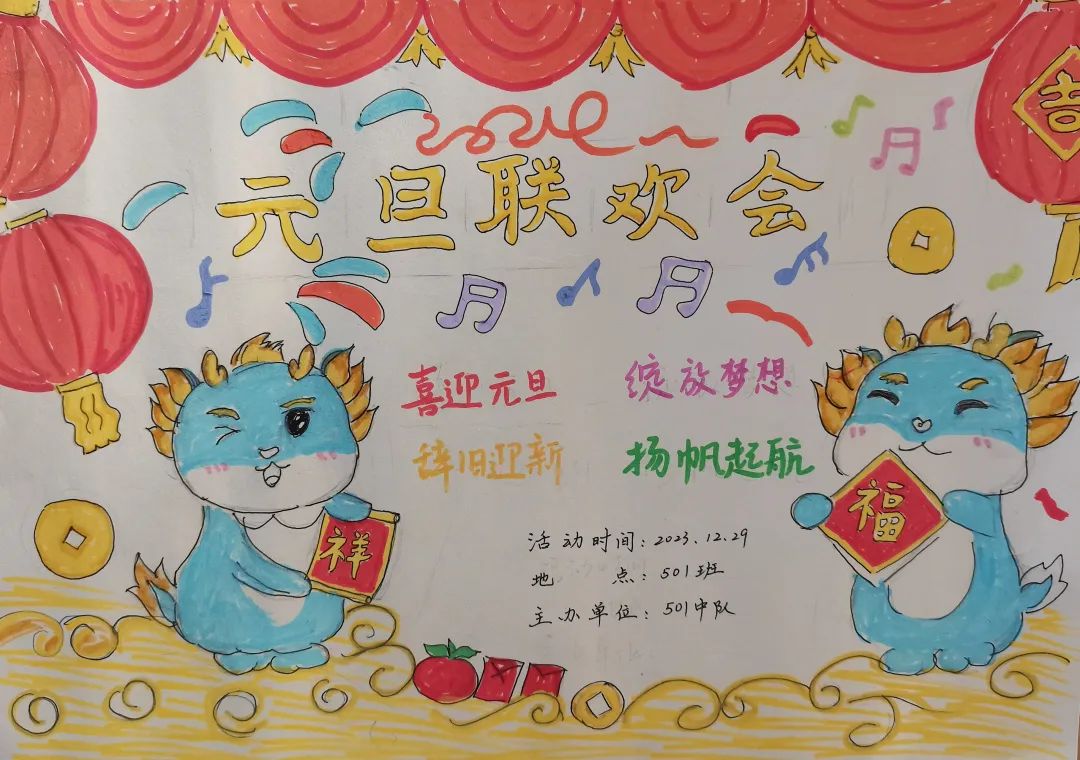 吉
2024
元旦联欢会
喜迎元旦 绽放梦想
辞旧迎新 扬帆起航
祥
福
活动时间：2023.12.29
地 点：501班
主办单位：501中队